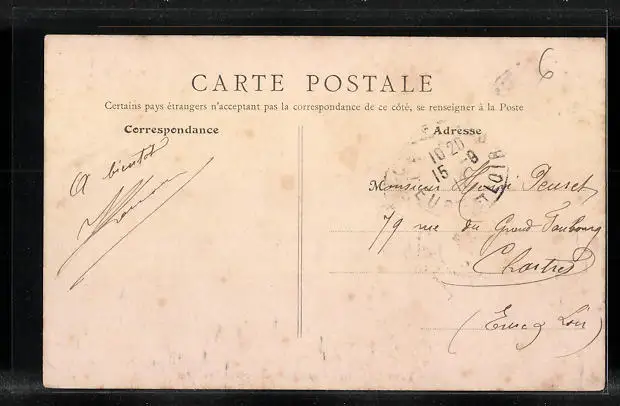 6
CARTE POSTALE
Certains pays étrangers n'acceptant pas la correspondance de ce côté, se renseigner à la Poste
Correspondance
Adresse
A bientôt
10 20
15 -9
EURE ET LOIR
Monsieur Henri
79 rue du Grand Faubourg
Chartres
(Eure & Loir)